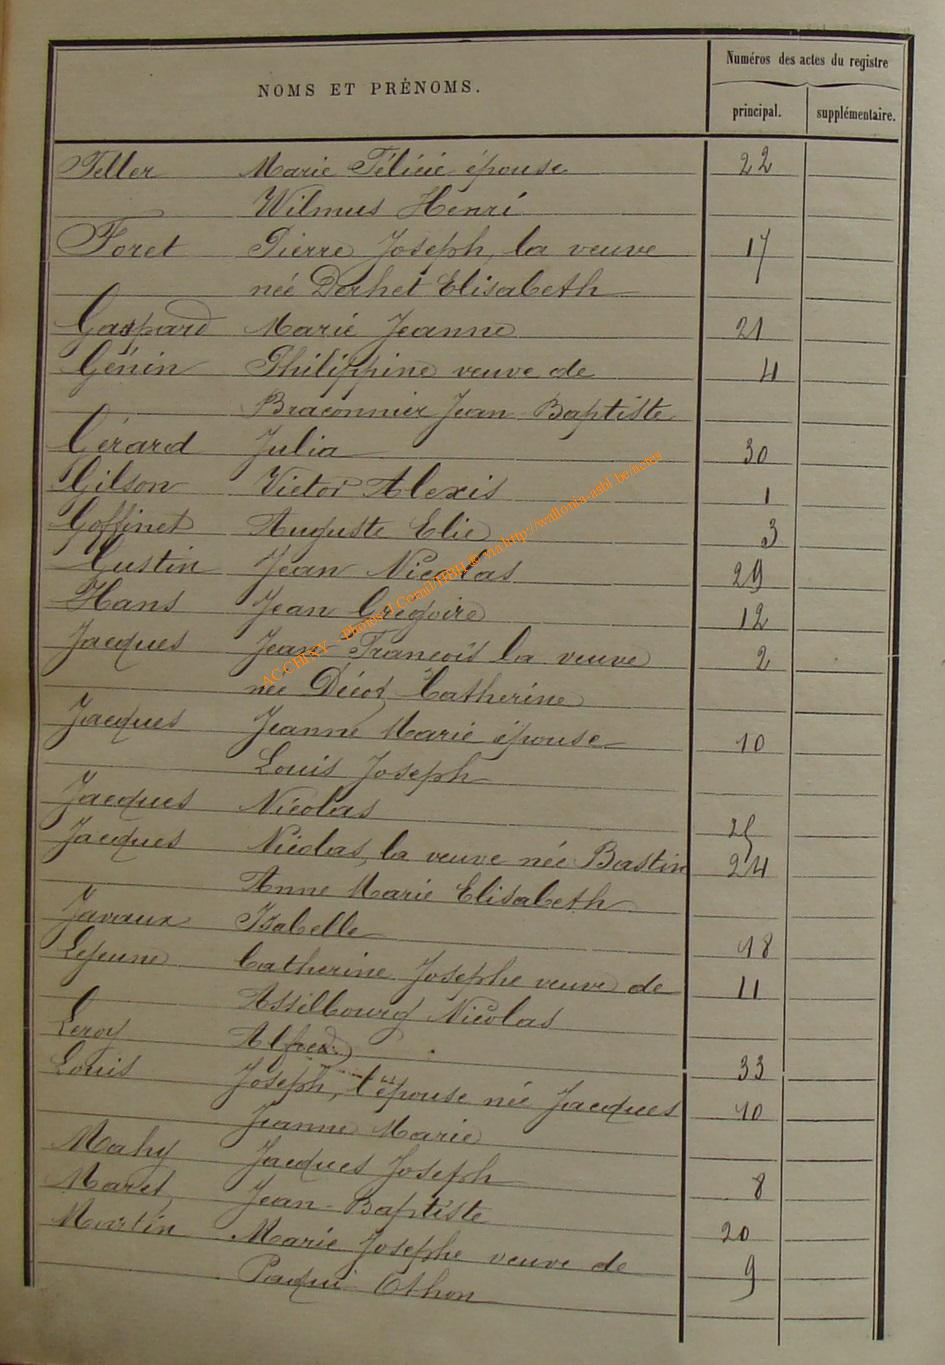 NOMS ET PRÉNOMS.
Numéros des actes du registre
principal.
supplémentaire.
Feller Marie Félicie épouse 22
Wilmus Henri
Foret Pierre Joseph, la veuve 17
née Dorhet Elisabeth
Gaspard Marie Jeanne 21
Génin Philippine veuve de 4
Braconnier Jean Baptiste
Gérard Julia 30
Gilson Victor Alexis 1
Goffinet Auguste Elie 3
Gustin Jean Nicolas 29
Hans Jean Grégoire 12
Jacques Jean François la veuve 2
née Décot Catherine
Jacques Jeanne Marie épouse 10
Louis Joseph
Jacques Nicolas 25
Jacques Nicolas, la veuve née Bastin 24
Anne Marie Elisabeth
Javaux Isabelle 18
Lejeune Catherine Josephe veuve de 11
Assilbourg Nicolas
Leroy Alfred 33
Louis Joseph, l'épouse née Jacques 10
Jeanne Marie
Mahy Jacques Joseph 8
Maret Jean-Baptiste 20
Martin Marie Josephe veuve de 9
Paqui Othon